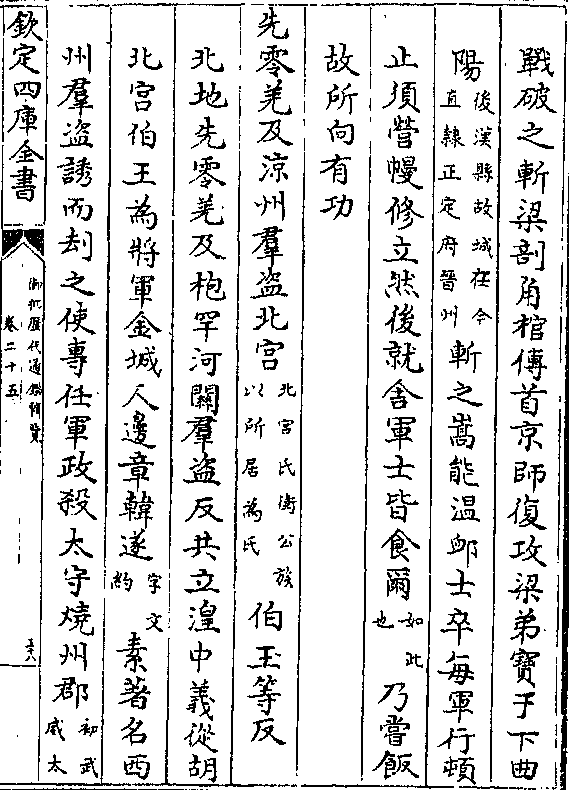 戰破之斬梁剖角棺傳首京師復攻梁弟寶于下曲
陽後漢縣故城在今直隸正定府晉州斬之嵩能溫䘏士卒每軍行頓
止須營幔修立然後就舍軍士皆食爾如此也乃嘗飯
故所向有功
先零羌及涼州羣盜北宫北宫氏衛公族以所居為氏伯玉等反
北地先零羌及枹罕河關羣盜反共立湟中義從胡
北宫伯玉為將軍金城人邊章韓遂字文約素著名西
州羣盜誘而刦之使專任軍政殺太守燒州郡初武威太
欽定四庫全書
御批歷代通鑑輯覽
卷二十五